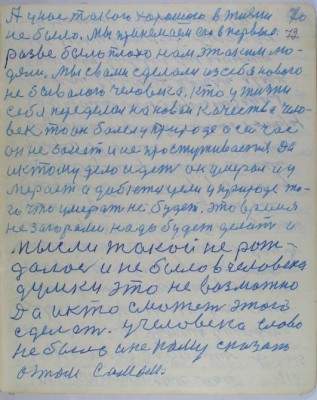 А у нас такого хорошого в жизни 70
не было. Мы принимаем ето впервые 79.
разве было плохо нам этаким лю-
дями, мы с вами сделали из себя нового
не бывалого человека. Кто у жизни
себя переделал на новой качества чело-
век то он болел у природе а сейчас
он не болеет и не простуживается. Да
и к тому дело идет он умерал и у
мерает а добется цели у природе то-
го что умерат не будет. это время
не загорами надо будет делат и
мысли такой не рож-
далос и не было в человека
думки это не возможно
Да и кто сможет этого
сделат. у человека слово
не было и не кому сказат
о том самом.